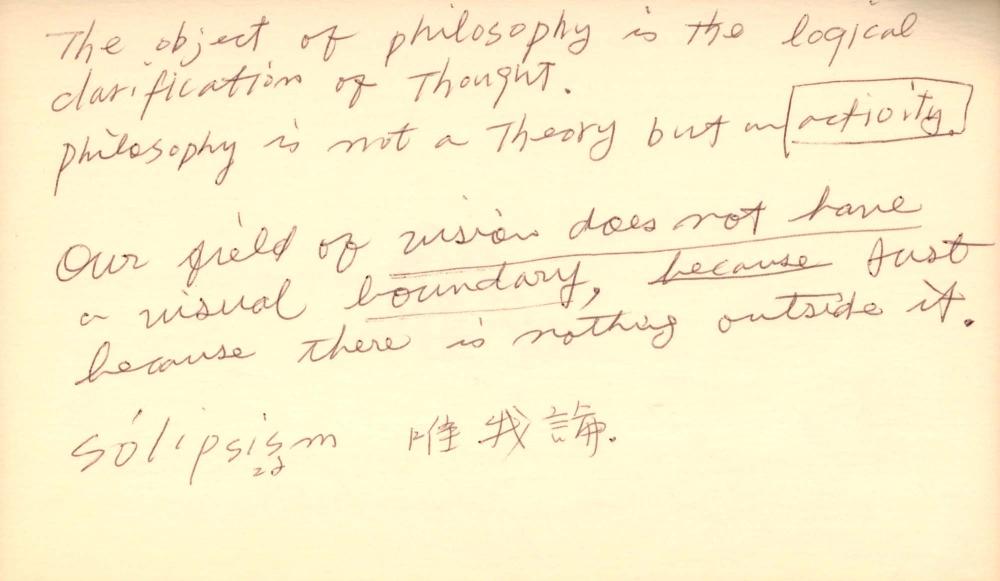 The object of philosophy is the logical
clarification of Thought.
philosophy is not a Theory but an activity.
Our field of vision does not have
a visual boundary, because Just
because there is nothing outside it.
sólipsism 唯我論.
zə